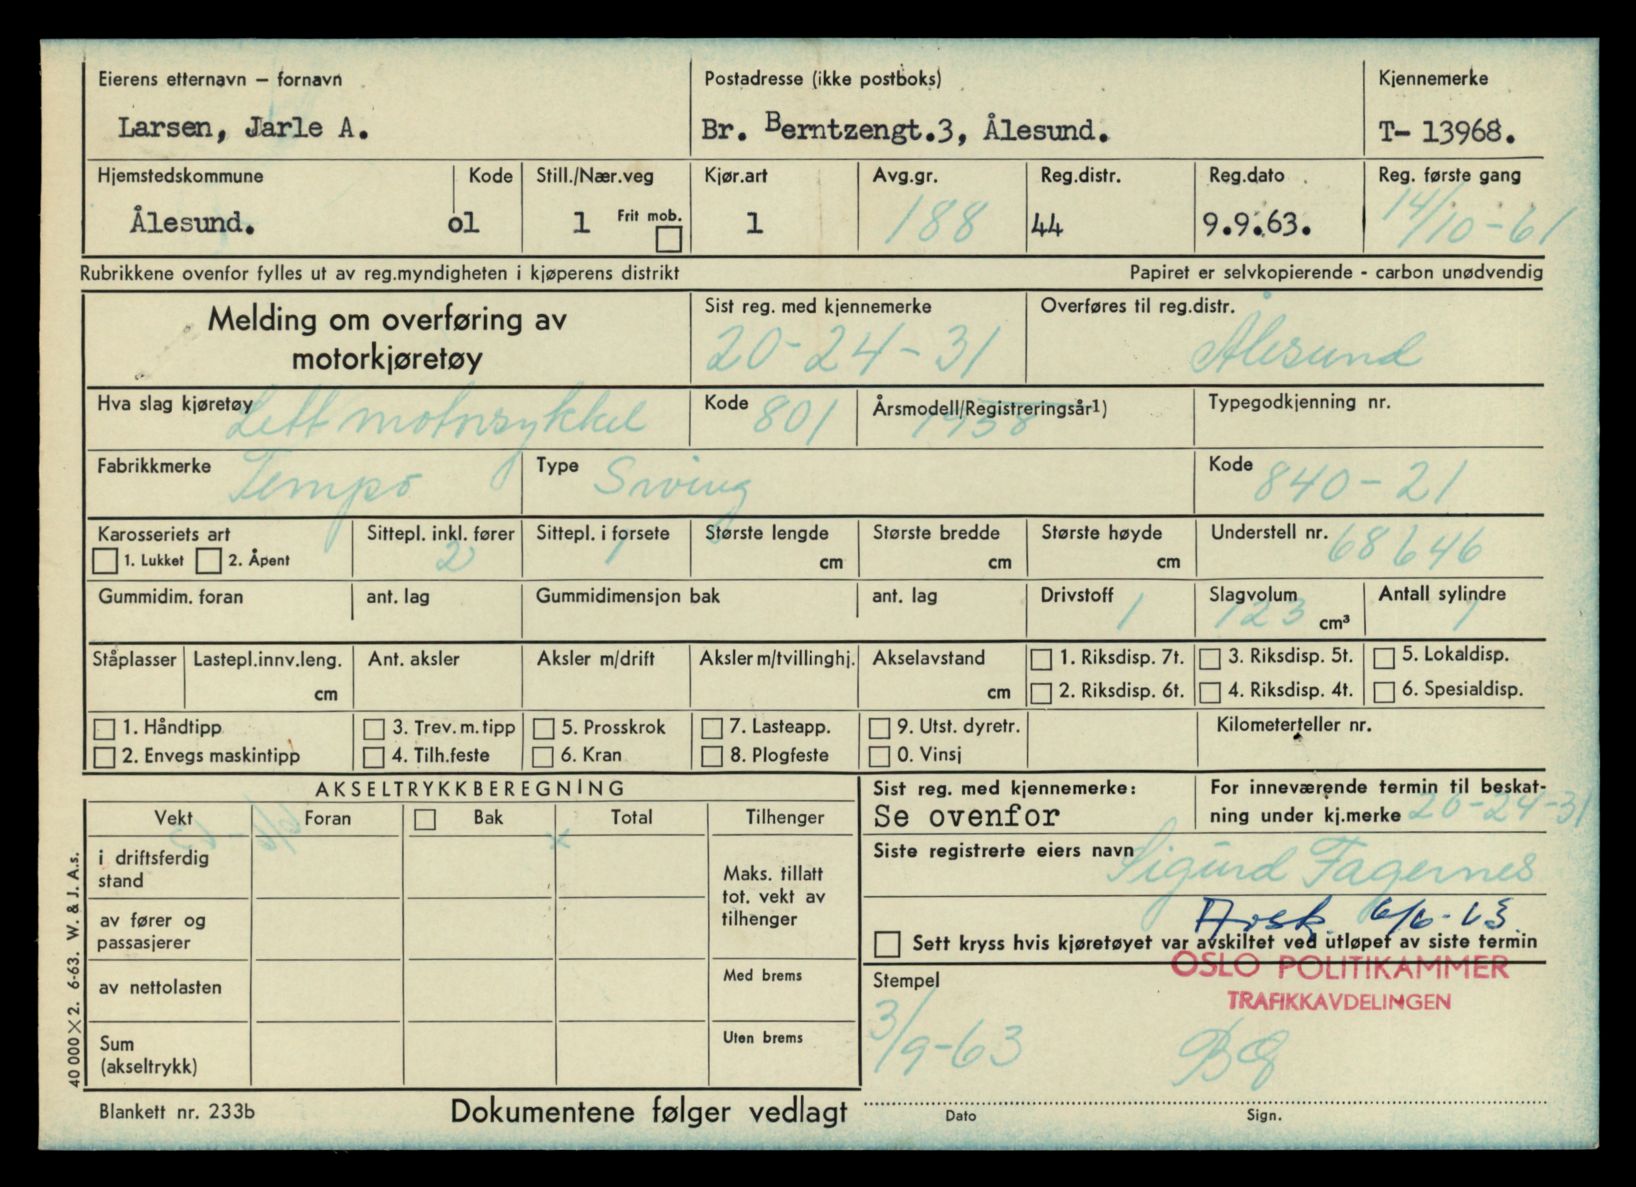 Eierens etternavn – fornavn Postadresse (ikke postboks) Kjennemerke
Larsen, Jarle A. Br. Berntzengt.3, Ålesund. T- 13968.
Hjemstedskommune Kode Still./Nær.veg Kjør.art Avg.gr. Reg.distr. Reg.dato Reg. første gang
Ålesund. o1 1 Frit mob. 1 188 44 9.9.63. 14/10-61
Rubrikkene ovenfor fylles ut av reg.myndigheten i kjøperens distrikt Papiret er selvkopierende - carbon unødvendig
Melding om overføring av
motorkjøretøy
Sist reg. med kjennemerke Overføres til reg.distr.
20-24-31 Ålesund
Hva slag kjøretøy Kode Årsmodell/Registreringsår1) Typegodkjenning nr.
Lett motorsykkel 801 1958
Fabrikkmerke Type Kode
Tempo Swing 840-21
Karosseriets art Sittepl. inkl. fører Sittepl. i forsete Største lengde Største bredde Største høyde Understell nr.
1. Lukket 2. Åpent 2 1 cm cm cm 68646
Gummidim. foran ant. lag Gummidimensjon bak ant. lag Drivstoff Slagvolum Antall sylindre
1 123 cm³ 1
Ståplasser Lastepl.innv.leng. Ant. aksler Aksler m/drift Aksler m/tvillinghj. Akselavstand 1. Riksdisp. 7t. 3. Riksdisp. 5t. 5. Lokaldisp.
cm cm 2. Riksdisp. 6t. 4. Riksdisp. 4t. 6. Spesialdisp.
1. Håndtipp 3. Trev. m. tipp 5. Prosskrok 7. Lasteapp. 9. Utst. dyretr. Kilometerteller nr.
2. Envegs maskintipp 4. Tilh.feste 6. Kran 8. Plogfeste 0. Vinsj
AKSELTRYKKBEREGNING
Vekt Foran Bak Total Tilhenger
i driftsferdig
stand
Maks. tillatt
tot. vekt av
tilhenger
av fører og
passasjerer
av nettolasten Med brems
Sum
(akseltrykk)
Uten brems
Sist reg. med kjennemerke:
Se ovenfor
For inneværende termin til beskat-
ning under kj.merke 20-24-31
Siste registrerte eiers navn Sigurd Fagernes
Avsk. 6/6-63
Sett kryss hvis kjøretøyet var avskiltet ved utløpet av siste termin
OSLO POLITIKAMMER
TRAFIKKAVDELINGEN
Stempel
3/9-63
Dato Sign.
40 000 X 2. 6-63. W. & J. A.s.
Blankett nr. 233b Dokumentene følger vedlagt